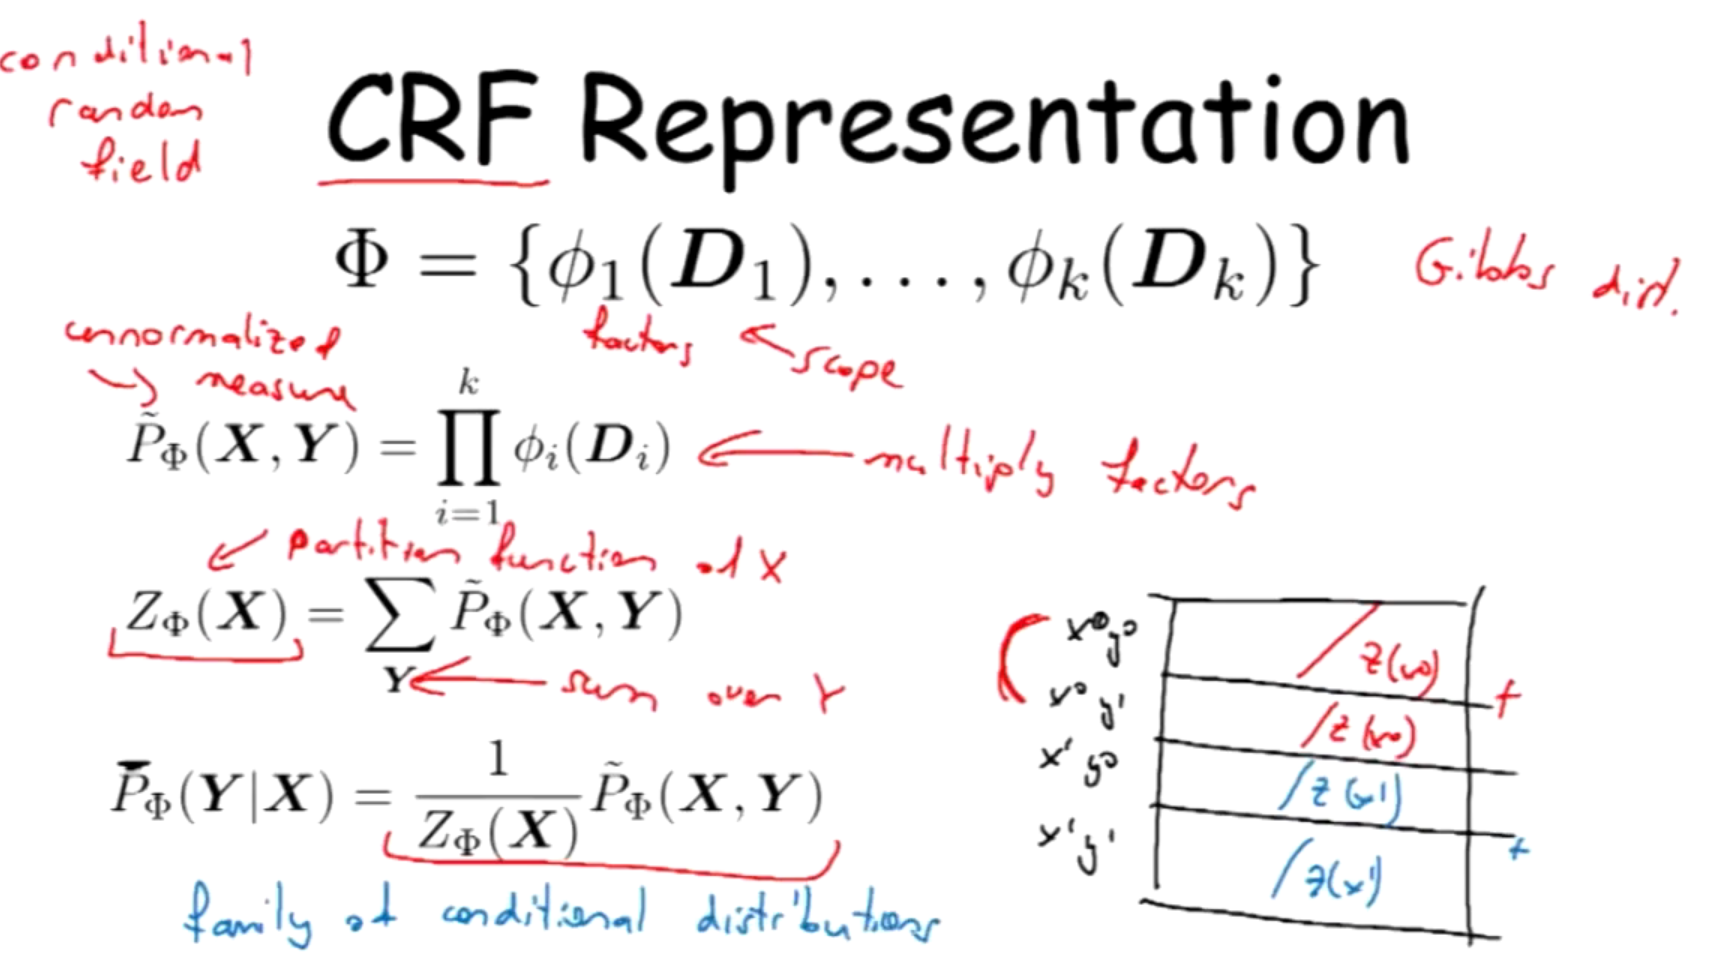 conditional
random
field
CRF Representation
Φ = {ϕ₁(D₁), . . . , ϕₖ(Dₖ)}
Gibbs dist.
factors
scope
unnormalized
measure
P̃_Φ(X, Y) = ∏_{i=1}^{k} ϕᵢ(Dᵢ)
multiply factors
partition function of X
Z_Φ(X) = ∑_Y P̃_Φ(X, Y)
sum over Y
P_Φ(Y|X) = 1/Z_Φ(X) P̃_Φ(X, Y)
family of conditional distributions
x⁰y⁰ /Z(x⁰)
+
x⁰y¹ /Z(x⁰)
x¹y⁰ /Z(x¹)
+
x¹y¹ /Z(x¹)